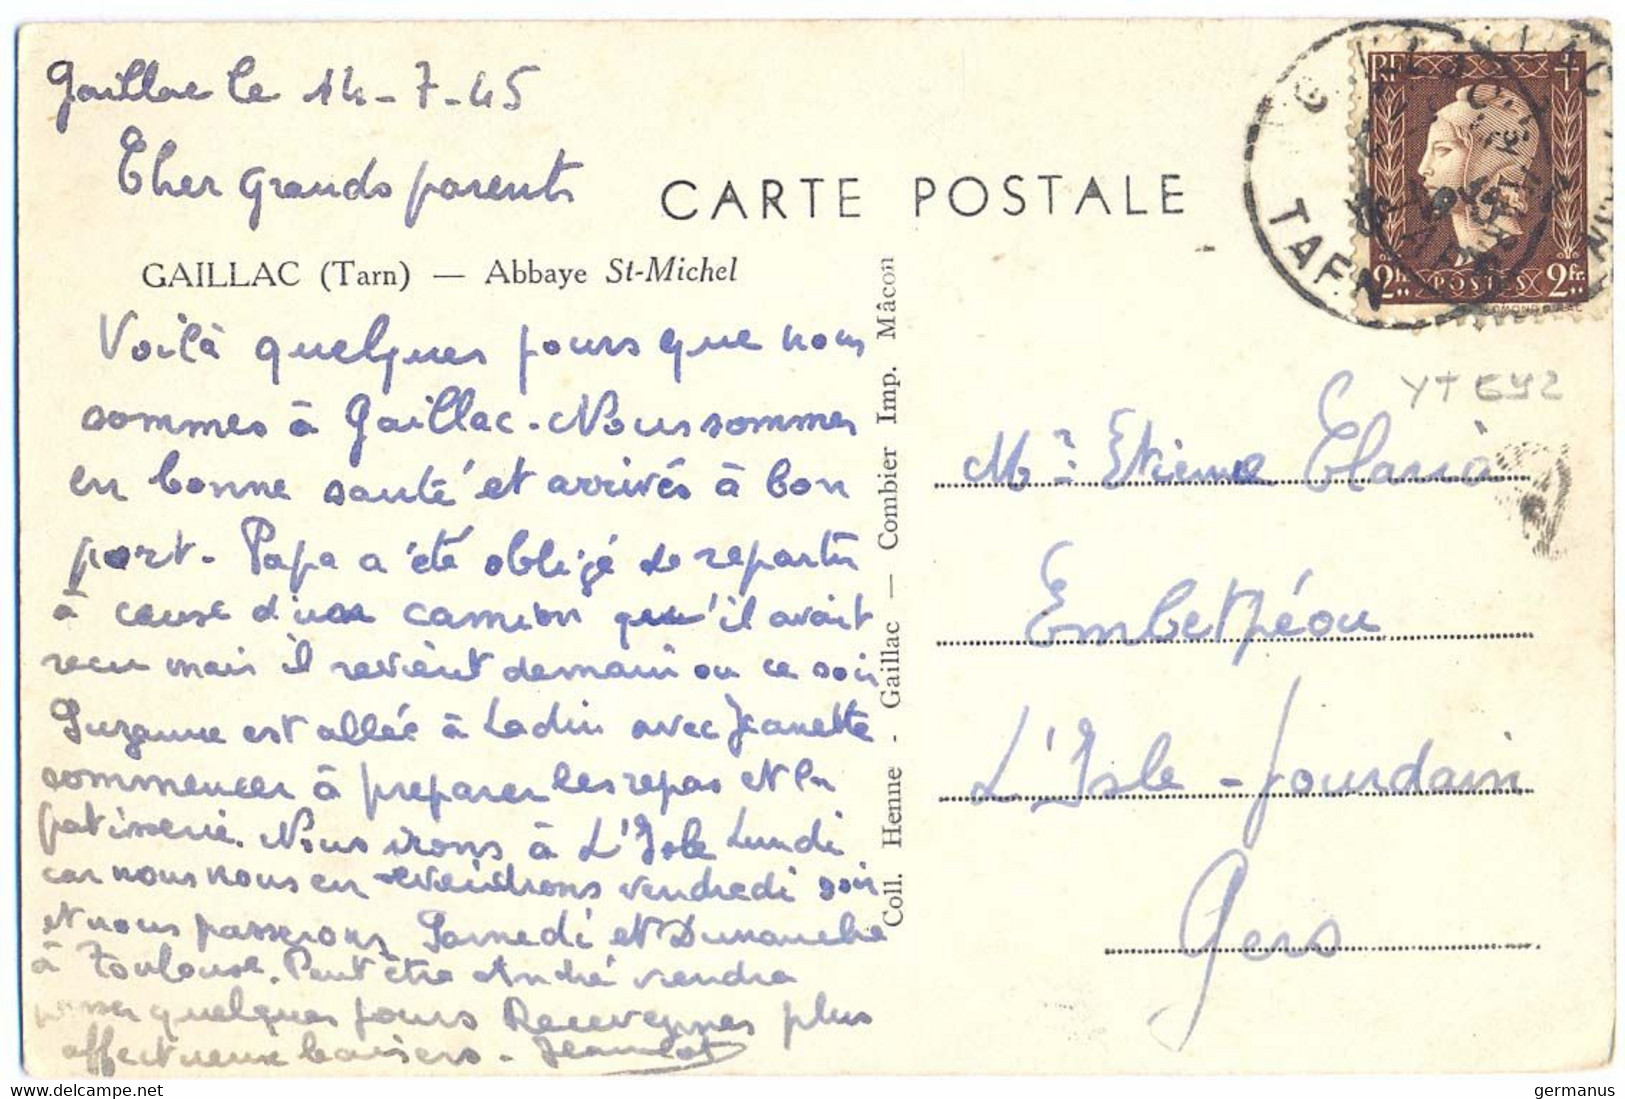 Gaillac le 14-7-45
Cher grands parents
CARTE POSTALE
GAILLAC (Tarn) — Abbaye St-Michel
Voilà quelques jours que nous
sommes à Gaillac. Nous sommes
en bonne santé et arrivés à bon
port. Papa a été obligé de repartir
à cause d'un camion qu'il avait
reçu mais il revient demain ou ce soir
Suzanne est allée à Ladin avec Jeanette
commencer à preparer les repas et la
patisserie. Nous irons à L'Isle Lundi
car nous nous en reviendrons vendredi soir
et nous passerons Samedi et Dimanche
à Toulouse. Peut être André viendra
passer quelques jours Recevez mes plus
affectueux baisers.
Coll. Henne - Gaillac — Combier Imp. Mâcon
RF
2fr. POSTES 2fr.
TARN
YT 692
Mr Etienne Claria
Embetpéou
L'Isle-Jourdain
Gers
germanus